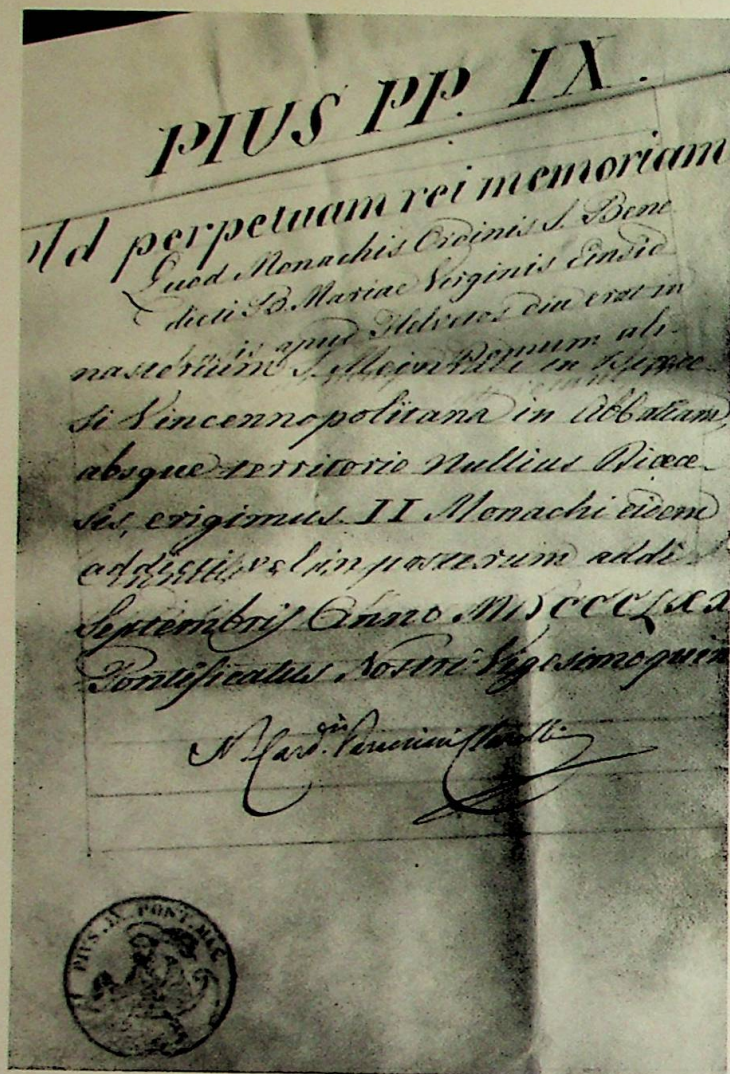 PIUS PP. IX.
Ad perpetuam rei memoriam
Quod Monachis Ordinis S. Bene
dicti B. Mariae Virginis Einsid
apud Helvetos diu erat in
nasterium S. Meinradi in
si Vincennopolitana in Abbatiam,
absque territorio Nullius Dioece-
sis, erigimus. II Monachi eidem
addicti vel in posterum addi
Septembris Anno MDCCCLXX
Pontificatus Nostri Vigesimoquin
N. Card.
PIUS. IX. PONT. MAX